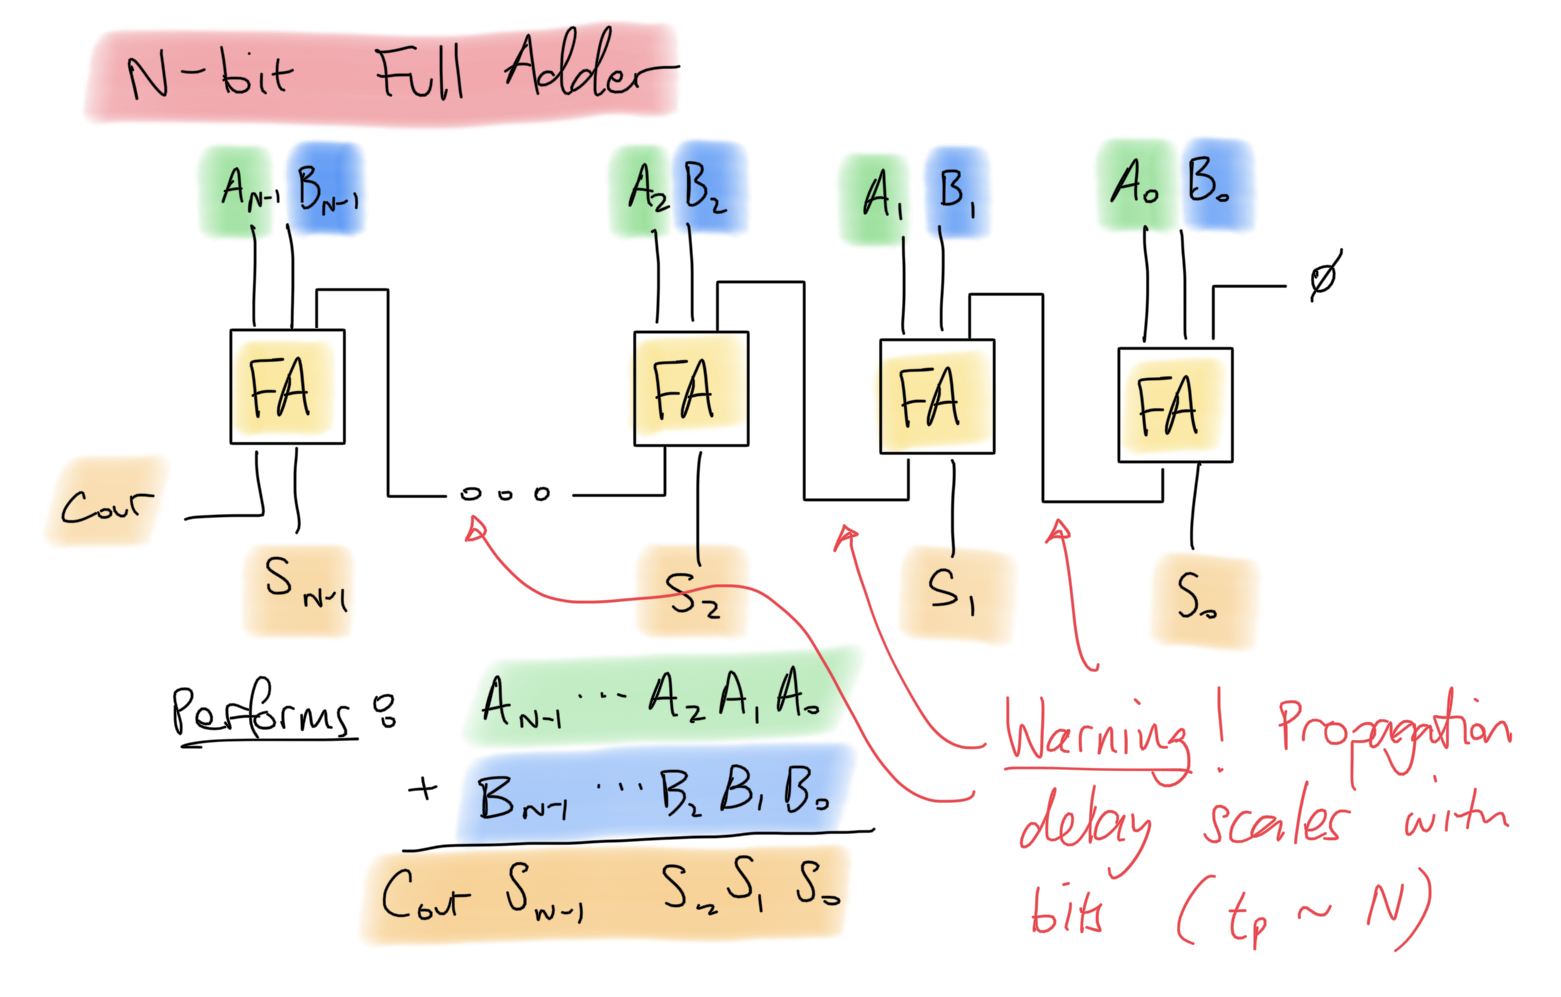 N-bit Full Adder
A_N-1 B_N-1 A_2 B_2 A_1 B_1 A_0 B_0
∅
FA FA FA FA
Cout
S_N-1 S_2 S_1 S_0
Performs:
A_N-1 ... A_2 A_1 A_0
+ B_N-1 ... B_2 B_1 B_0
Cout S_N-1 S_2 S_1 S_0
Warning! Propagation
delay scales with
bits (t_p ~ N)